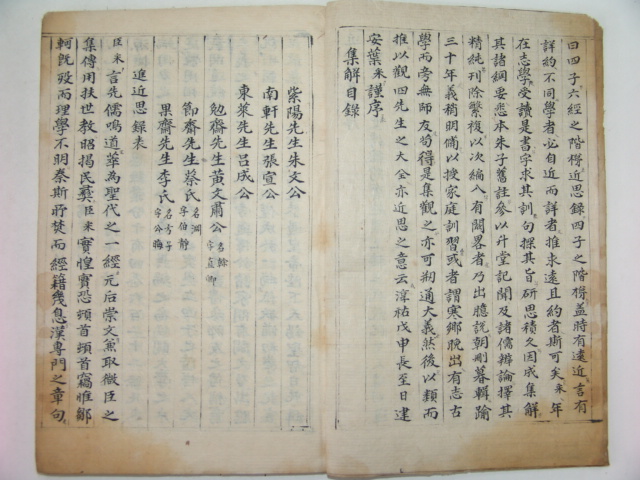 曰四子六經之階梯近思錄四子之階梯盖時有遠近言有
詳約不同學者必自近而詳者推求遠且約者斯可矣采年
在志學受讀是書字求其訓句探其旨研思積久因成集解
其諸綱要悉本朱子舊註參以升堂記聞及諸儒辨論擇其
精純刊除繁複以次編入有闕畧者乃出臆說朝刪暮輯踰
三十年義稍明備以授家庭訓習或者謂寒鄉晚出有志古
學而旁無師友苟得是集觀之亦可剏通大義然後以類而
推以觀四先生之大全亦近思之意云淳祐戊申長至日建
安葉采謹序
集解目錄
紫陽先生朱文公
南軒先生張宣公
東萊先生呂成公
勉齋先生黃文肅公 名榦 字直卿
節齋先生蔡氏 名淵 字伯靜
果齋先生李氏 名方子 字公晦
進近思錄表
臣采言先儒鳴道萃為聖代之一經元后崇文兼取微臣之
集傳用扶世教昭揭民彝臣采實惶實恐頓首頓首竊惟鄒
軻旣歿而理學不明秦斯所焚而經籍幾息漢專門之章句